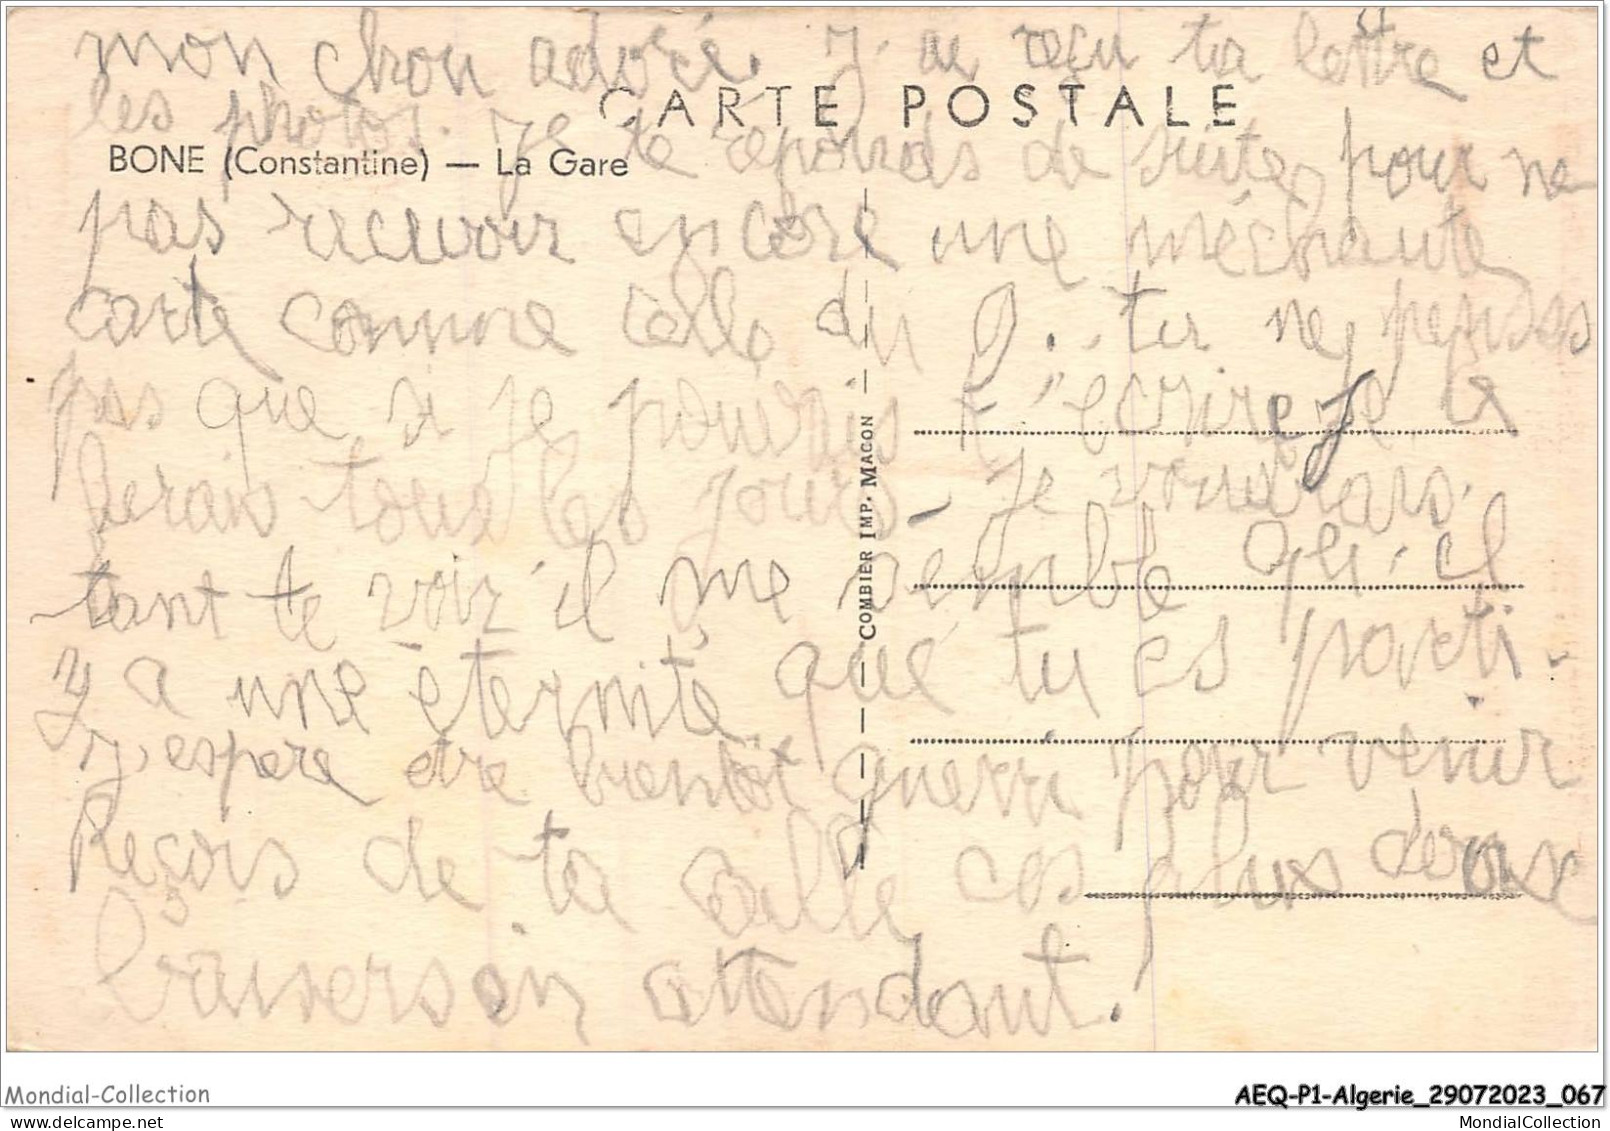 mon chou adoré. J'ai reçu ta lettre et
CARTE POSTALE
les photos. Je te réponds de suite, pour ne
BONE (Constantine) — La Gare
pas recevoir encore une méchante
carte comme celle du 9... tu ne penses
pas que si je pouvais t'écrire je le
ferais tous les jours - je voudrais
COMBIER IMP. MACON
tant te voir il me semble qu'il
y a une éternité que tu es parti.
J'espere être bientôt guerri pour venir
Reçois de ta ces plus doux
baisers en attendant.
Mondial-Collection
AEQ-P1-Algerie_29072023_067
MondialCollection